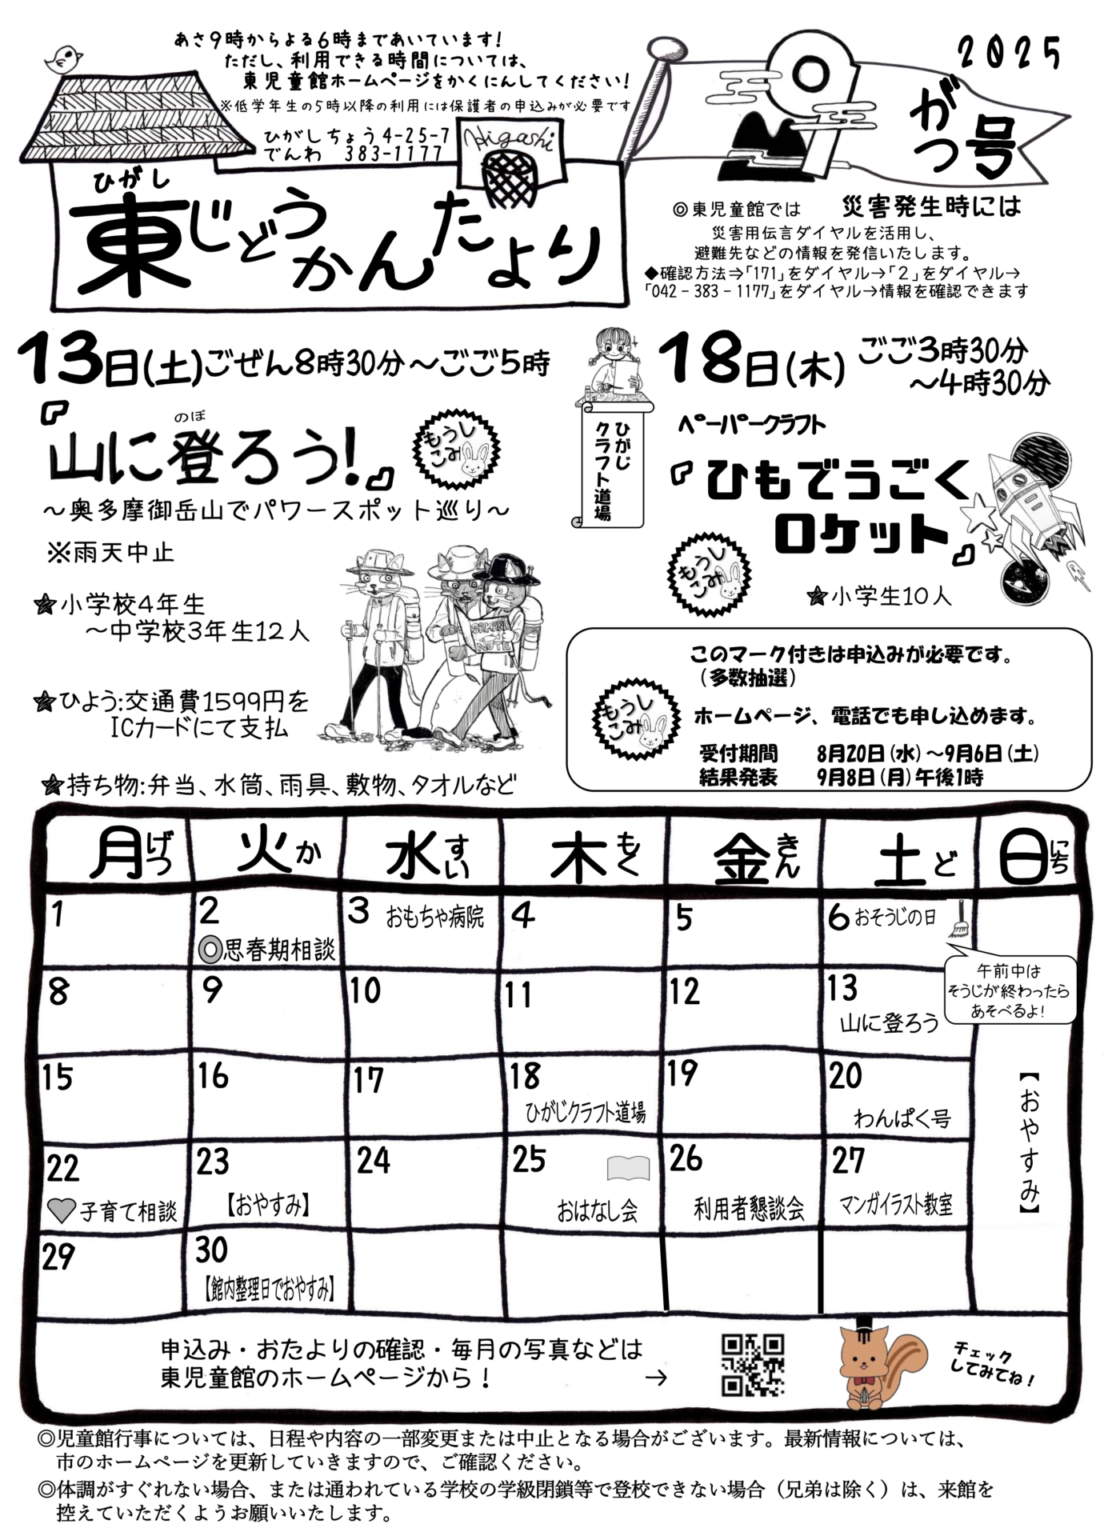 あさ9時からよる6時まであいています!
ただし、利用できる時間については、
東児童館ホームページをかくにんしてください!
※低学年生の5時以降の利用には保護者の申込みが必要です
ひがしちょう4-25-7
でんわ 383-1177
Higashi
ひがし
東じどうかんたより
2025
9がつ号
◎東児童館では 災害発生時には
災害用伝言ダイヤルを活用し、
避難先などの情報を発信いたします。
◆確認方法⇒「171」をダイヤル→「2」をダイヤル→
「042-383-1177」をダイヤル→情報を確認できます
13日(土)ごぜん8時30分~ごご5時
のぼ
『山に登ろう!』
もうしこみ
~奥多摩御岳山でパワースポット巡り~
※雨天中止
★小学校4年生
~中学校3年生12人
★ひよう:交通費1599円を
ICカードにて支払
★持ち物:弁当、水筒、雨具、敷物、タオルなど
ひがじ
クラフト道場
18日(木) ごご3時30分
~4時30分
ペーパークラフト
『ひもでうごく
ロケット』
もうしこみ
★小学生10人
もうしこみ
このマーク付きは申込みが必要です。
(多数抽選)
ホームページ、電話でも申し込めます。
受付期間 8月20日(水)~9月6日(土)
結果発表 9月8日(月)午後1時
月げつ 火か 水すい 木もく 金きん 土ど 日にち
1 2 3 おもちゃ病院 4 5 6 おそうじの日
◎思春期相談
午前中は
そうじが終わったら
あそべるよ!
8 9 10 11 12 13
山に登ろう
15 16 17 18 19 20
ひがじクラフト道場 わんぱく号
【おやすみ】
22 23 24 25 26 27
子育て相談 【おやすみ】 おはなし会 利用者懇談会 マンガイラスト教室
29 30
【館内整理日でおやすみ】
申込み・おたよりの確認・毎月の写真などは
東児童館のホームページから! →
チェック
してみてね!
◎児童館行事については、日程や内容の一部変更または中止となる場合がございます。最新情報については、
市のホームページを更新していきますので、ご確認ください。
◎体調がすぐれない場合、または通われている学校の学級閉鎖等で登校できない場合(兄弟は除く)は、来館を
控えていただくようお願いいたします。